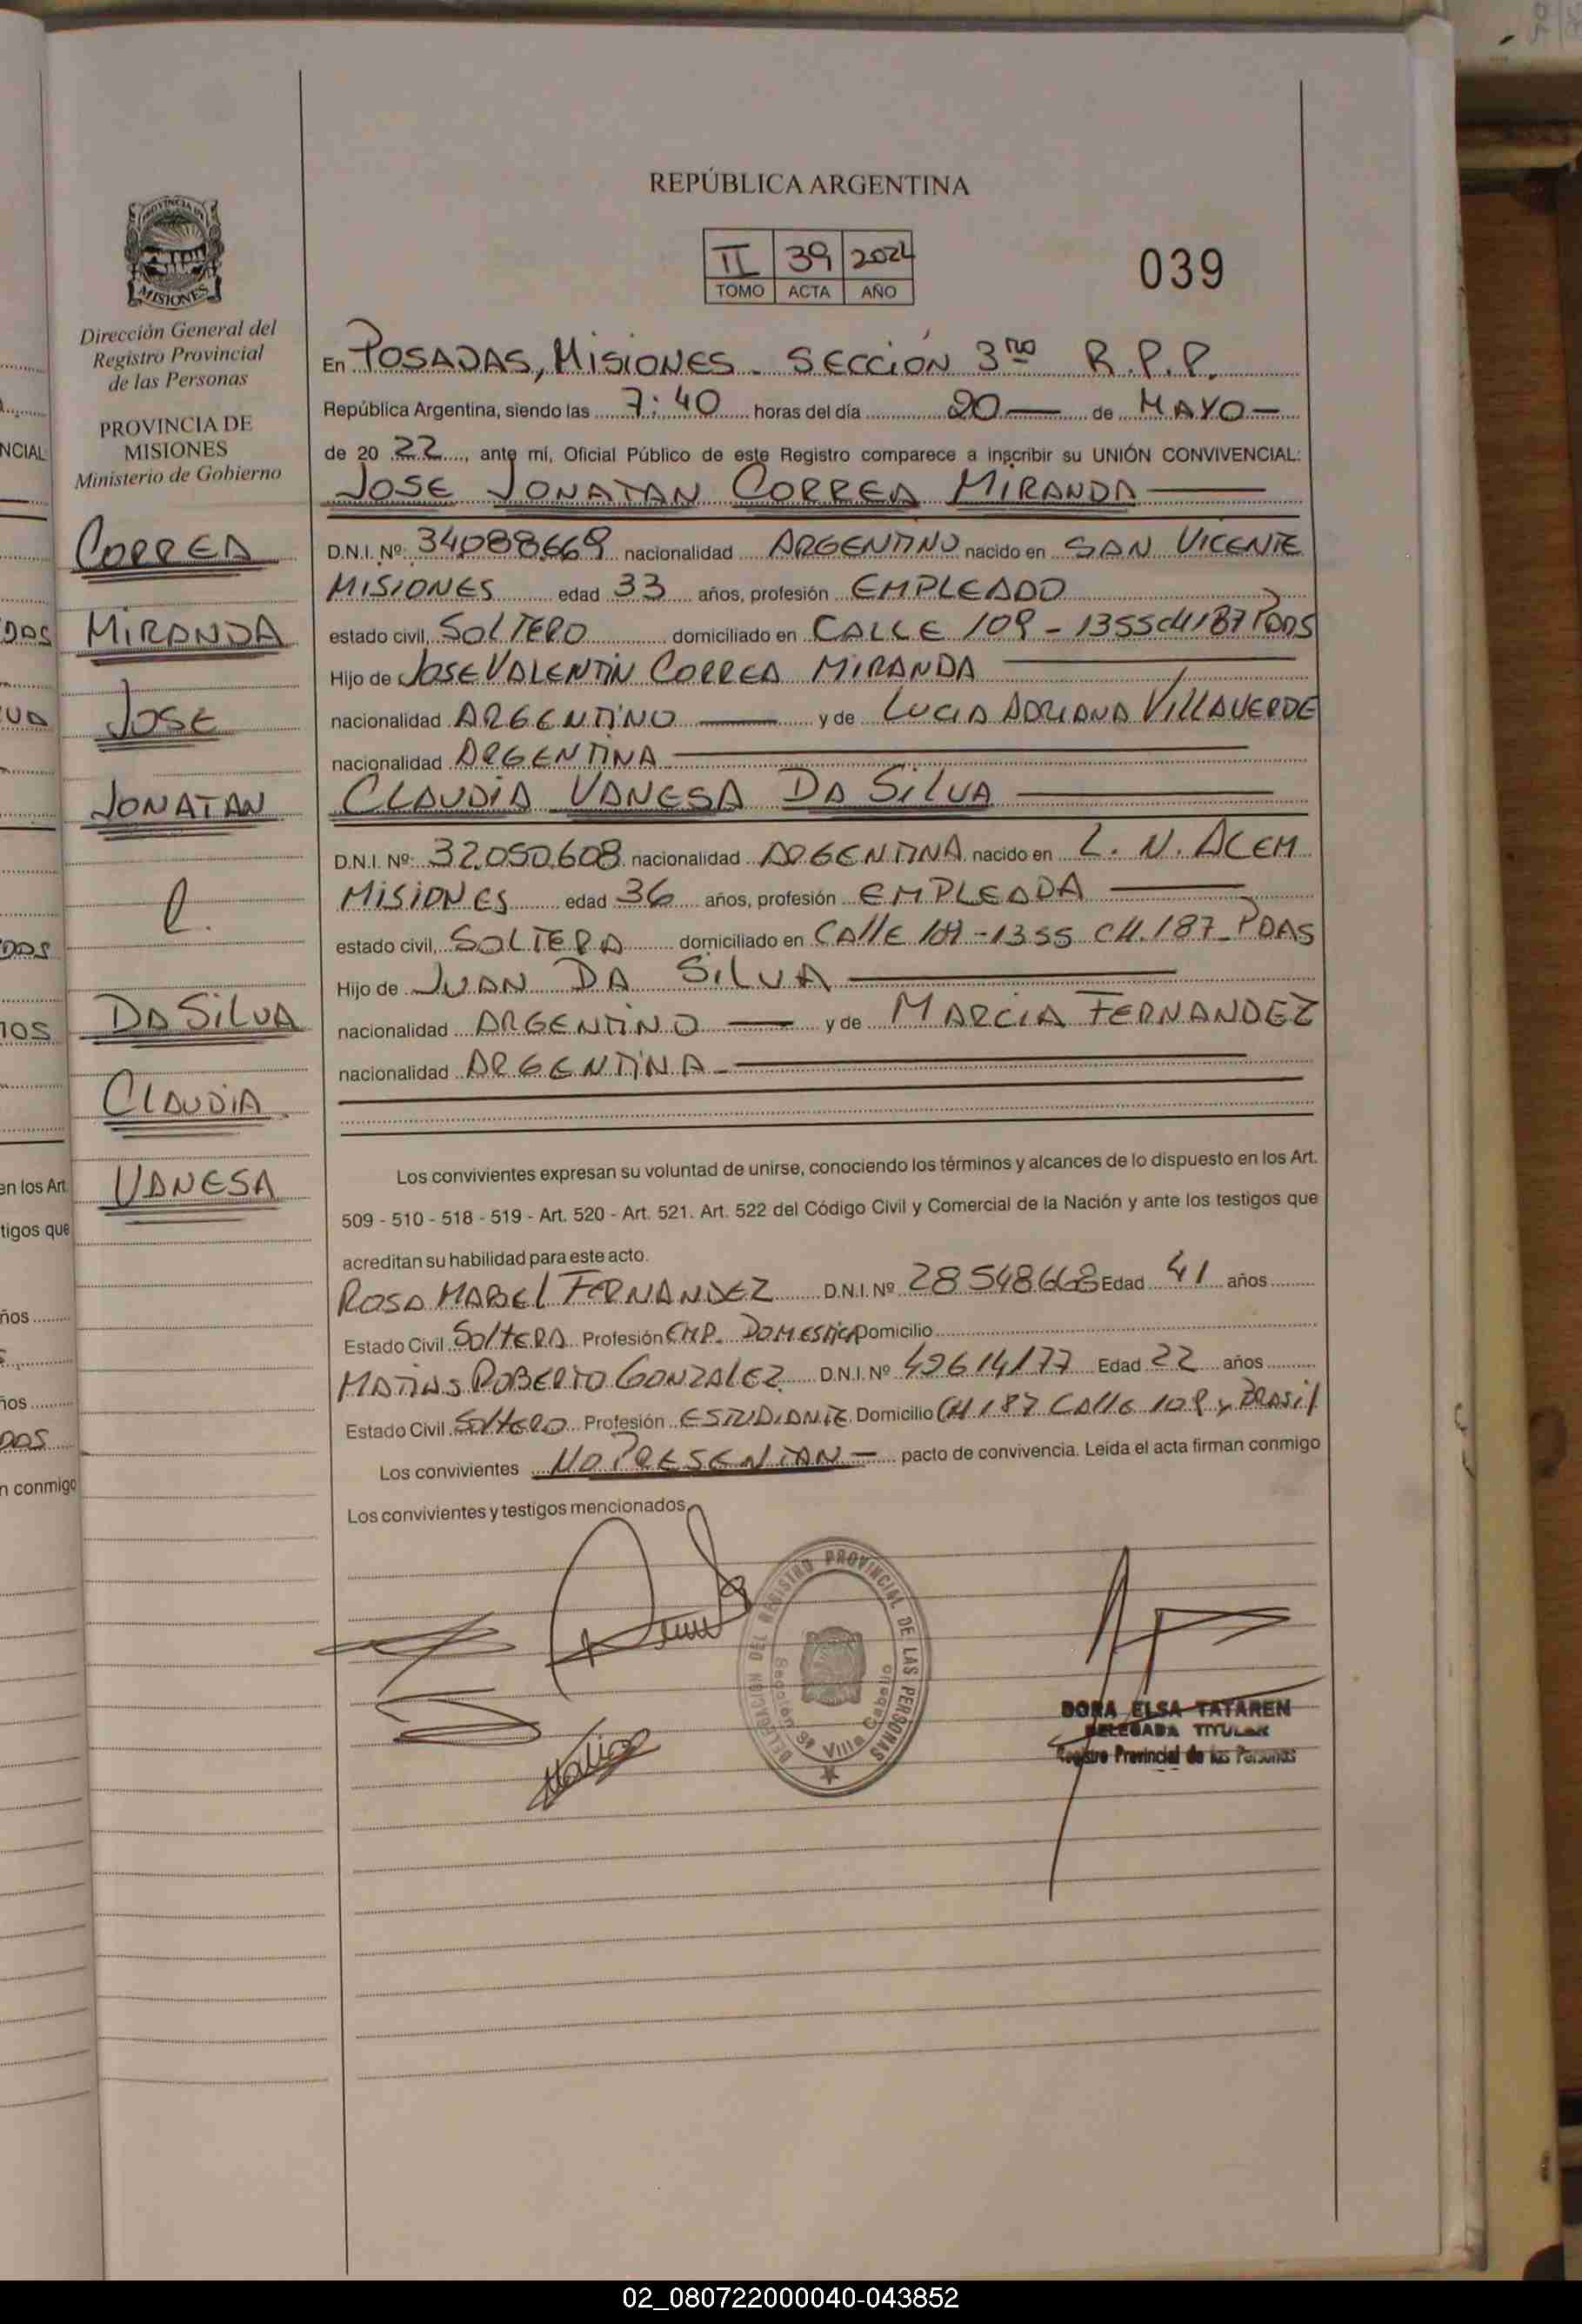 REPÚBLICA ARGENTINA
II 39 2024
TOMO ACTA AÑO
039
PROVINCIA DE
MISIONES
Dirección General del
Registro Provincial
de las Personas
PROVINCIA DE
MISIONES
Ministerio de Gobierno
CORREA
MIRANDA
JOSE
JONATAN
DA SILVA
CLAUDIA
VANESA
En POSADAS, MISIONES - SECCIÓN 3ra R.P.P.
República Argentina, siendo las 7:40 horas del día 20 — de MAYO —
de 20 22, ante mí, Oficial Público de este Registro comparece a inscribir su UNIÓN CONVIVENCIAL:
JOSE JONATAN CORREA MIRANDA
D.N.I. Nº: 34.088.669 nacionalidad ARGENTINO nacido en SAN VICENTE
MISIONES edad 33 años, profesión EMPLEADO
estado civil, SOLTERO domiciliado en CALLE 109 - 1355 CH 187 PDAS
Hijo de JOSE VALENTIN CORREA MIRANDA
nacionalidad ARGENTINO — y de LUCIA ADRIANA VILLAVERDE
nacionalidad ARGENTINA
CLAUDIA VANESA DA SILVA
D.N.I. Nº: 32.050.608 nacionalidad ARGENTINA nacido en L. N. ALEM
MISIONES edad 36 años, profesión EMPLEADA
estado civil, SOLTERA domiciliado en CALLE 109 - 1355 CH. 187 - PDAS
Hijo de JUAN DA SILVA
nacionalidad ARGENTINO — y de MARCIA FERNANDEZ
nacionalidad ARGENTINA
Los convivientes expresan su voluntad de unirse, conociendo los términos y alcances de lo dispuesto en los Art.
509 - 510 - 518 - 519 - Art. 520 - Art. 521. Art. 522 del Código Civil y Comercial de la Nación y ante los testigos que
acreditan su habilidad para este acto.
ROSA MABEL FERNANDEZ D.N.I. Nº 28548668 Edad 41 años
Estado Civil SOLTERA Profesión EMP. DOMESTICA Domicilio
MATIAS ROBERTO GONZALEZ D.N.I. Nº 42614177 Edad 22 años
Estado Civil SOLTERO Profesión ESTUDIANTE Domicilio CH 187 CALLE 109 y BRASIL
Los convivientes NO PRESENTAN — pacto de convivencia. Leída el acta firman conmigo
Los convivientes y testigos mencionados
DELEGACION DEL REGISTRO PROVINCIAL DE LAS PERSONAS
Sección 3ª Villa Cabello
DORA ELSA TATAREN
DELEGADA TITULAR
Registro Provincial de las Personas
NCIAL:
DAS
en los Art.
tigos que
ños
ños
DAS
n conmigo
02_080722000040-043852